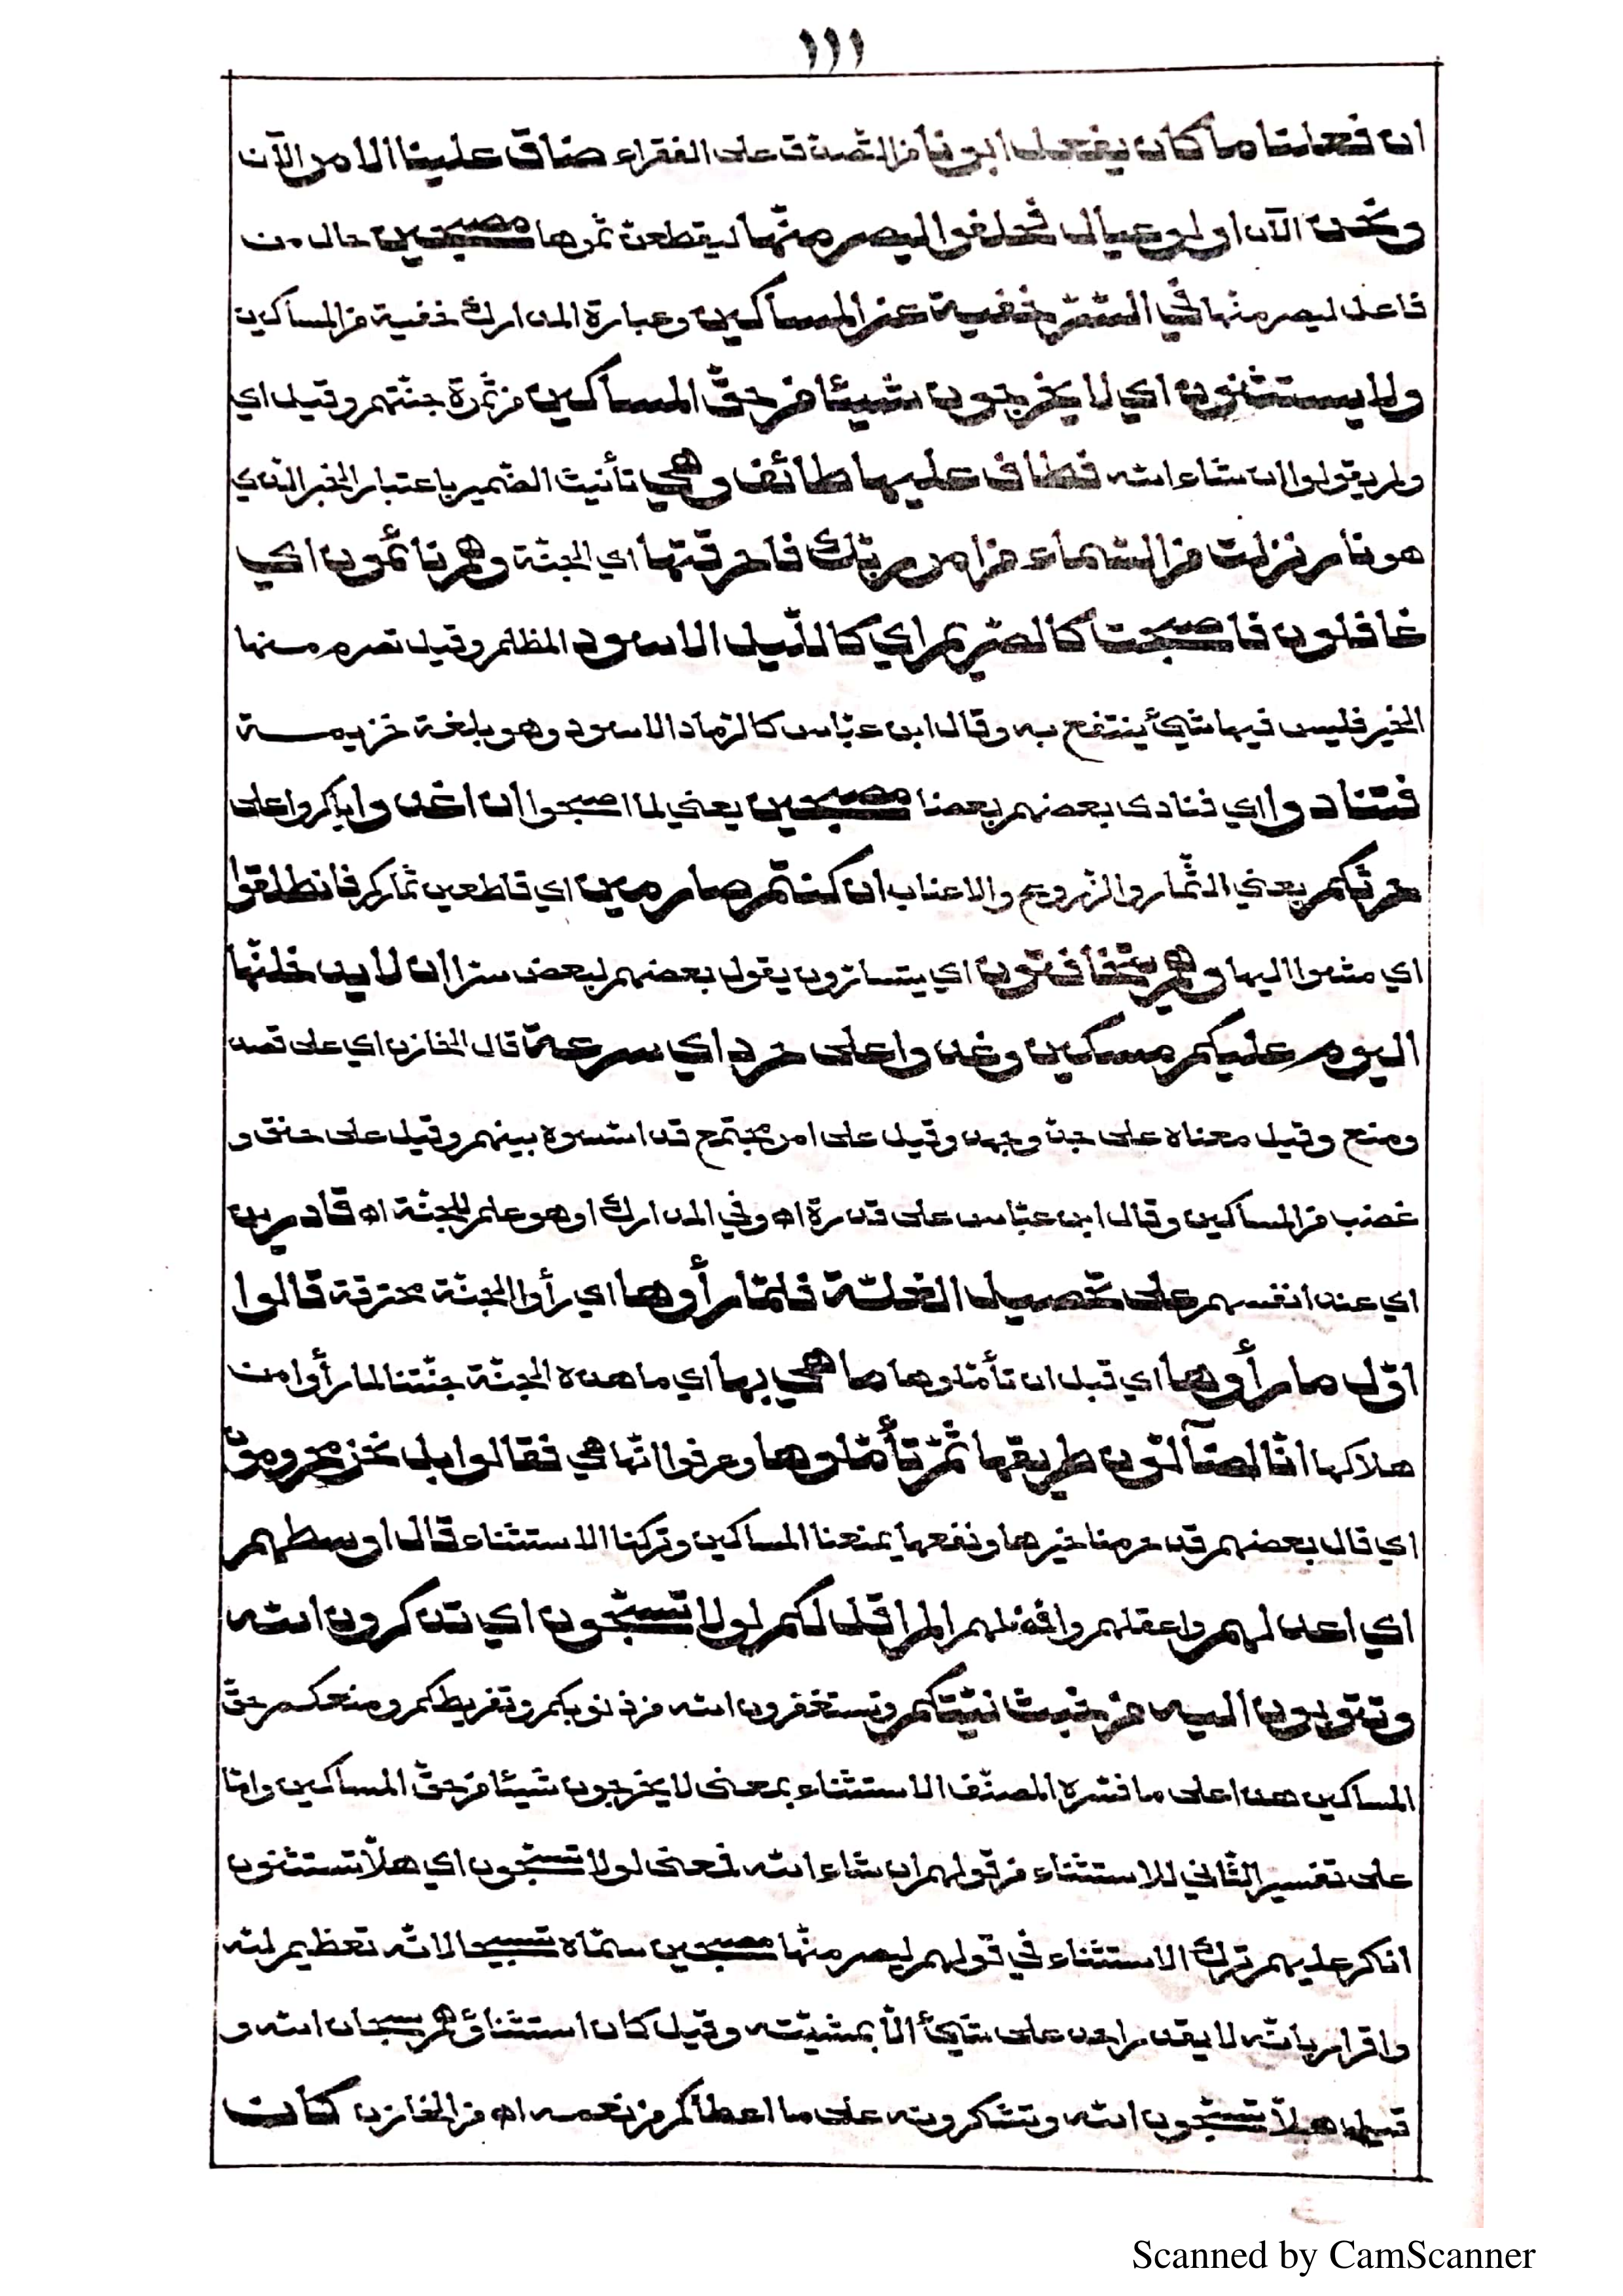 ١١١
ان فعلنا ما كان يفعل ابونا من التصدّق على الفقراء ضاق علينا الامر الآن
ونحن الآن اولو عيال فحلفوا ليصرمنّها ليقطعنّ ثمرها مصبحين حال من
فاعل ليصرمنّها في السّرّ خفية عن المساكين وعبارة المدارك خفية من المساكين
ولا يستثنون اي لا يخرجون شيئا من حقّ المساكين من ثمرة جنّتهم وقيل اي
ولم يقولوا ان شاء الله فطاف عليها طائف وهي تأنيث الضّمير باعتبار الخبر الذي
هو نار نزلت من السّماء من امر ربّك فاحرقتها اي الجنّة وهم نائمون اي
غافلون فاصبحت كالصّريم اي كاللّيل الاسود المظلم وقيل تصرم منها
الخير فليس فيها شيئ ينتفع به وقال ابن عبّاس كالرّماد الاسود وهو بلغة خزيمسة
فتنادوا اي فنادى بعضهم بعضا مصبحين يعني لما اصبحوا ان اغدوا باكروا على
حرثكم يعني الثّمار والزّروع والاعناب ان كنتم صارمين اي قاطعين ثماركم فانطلقوا
اي مشوا اليها وهم يتخافتون اي يتسارّون يقول بعضهم لبعض سرّا ان لا يدخلنّها
اليوم عليكم مسكين وغدوا على حرد اي سرعة قال الخازن اي على قصد
ومنع وقيل معناه على جدّ وجهد وقيل على امر مجتمع قد اسّسوه بينهم وقيل على حنق و
غضب من المساكين وقال ابن عبّاس على قدرة اه وفي المدارك او هو علم للجنّة اه قادرين
اي عند انفسهم على تحصيل الغلّة فلمّا رأوها اي رأوا الجنّة محترقة قالوا
اوّل ما رأوها اي قبل ان تأمّلوها ما هي بها اي ما هذه الجنّة جنّتنا لما رأوا من
هلاكها انّا لضآلّون طريقها ثمّ تأمّلوها وعرفوا انّها هي فقالوا بل نحن محرومون
اي قال بعضهم قد حرمنا خيرها ونفعها بمنعنا المساكين وتركنا الاستثناء قال اوسطهم
اي اعدلهم واعقلهم وافضلهم الم اقل لكم لولا تسبّحون اي تذكرون الله
وتتوبون اليه من خبث نيّتكم وتستغفرون الله من ذنوبكم وتفريطكم ومنعكم حقّ
المساكين هذا على ما فسّره المصنّف الاستثناء بمعنى لا يخرجون شيئا من حقّ المساكين وامّا
على تفسير الثّاني للاستثناء من قولهم ان شاء الله فمعنى لولا تسبّحون اي هلاّ تستثنون
انكر عليهم ترك الاستثناء في قولهم ليصرمنّها مصبحين سمّاه تسبيحا لانّه تعظيم لله
واقرار بانّه لا يقدر احد على شيئ الاّ بمشيّته وقيل كان استثناؤهم سبحان الله و
قيل هلاّ تسبّحون الله وتشكرونه على ما اعطاكم من نعمه اه من الخازن كانت
Scanned by CamScanner